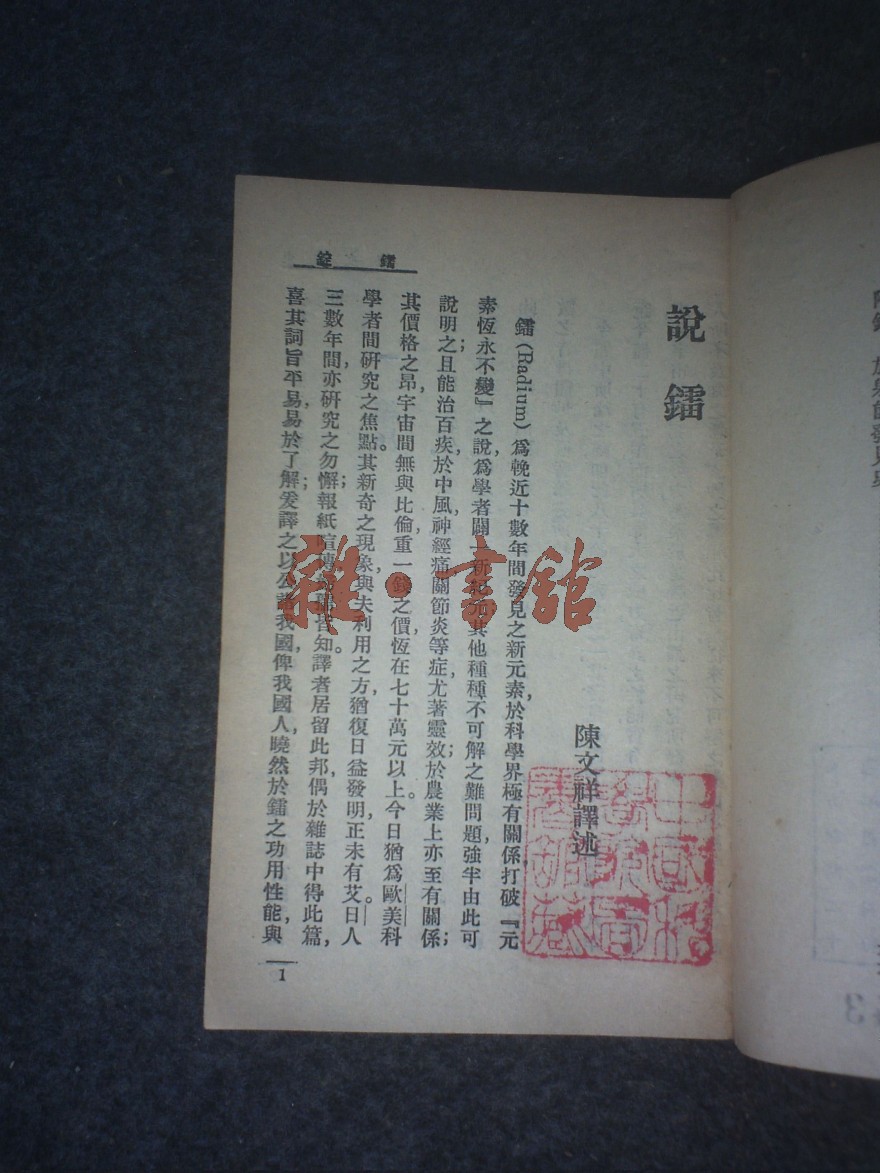 說鐳
陳文祥譯述
鐳(Radium)爲輓近十數年間發見之新元素,於科學界極有關係,打破『元
素恆永不變』之說,爲學者闢一新紀元,其他種種不可解之難問題,強半由此可
說明之;且能治百疾,於中風,神經痛,關節炎等症,尤著靈效;於農業上亦至有關係;
其價格之昂,宇宙間無與比倫,重一錢之價,恆在七十萬元以上。今日猶爲歐美科
學者間研究之焦點。其新奇之現象,與夫利用之方,猶復日益發明,正未有艾。日人
三數年間,亦研究之勿懈;報紙喧傳,婦孺皆知。譯者居留此邦,偶於雜誌中得此篇,
喜其詞旨平易,易於了解;爰譯之以公諸我國,俾我國人,曉然於鐳之功用性能,與
鐳錠
1
雜·書館